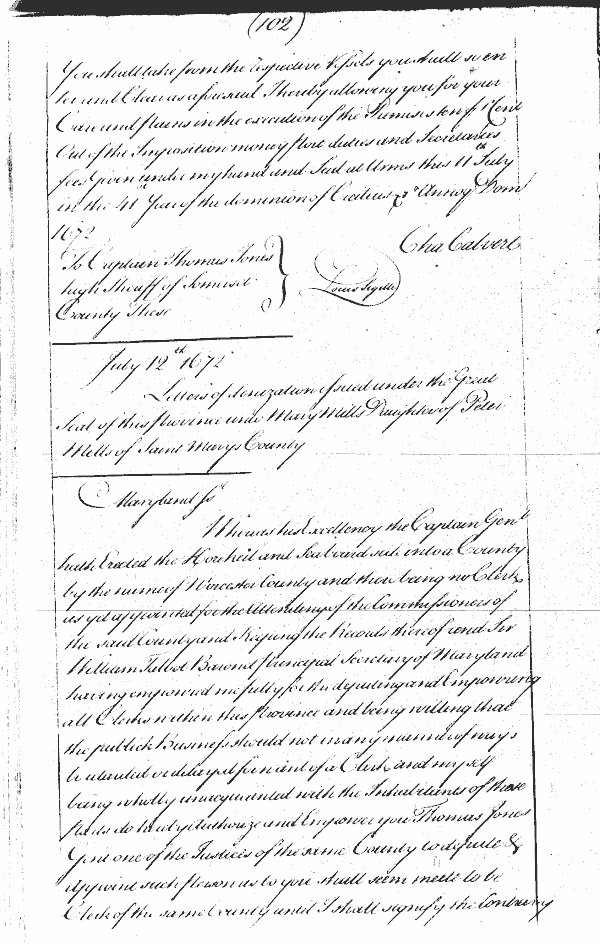 (102)
You shall take from the respective Vessels you shall so en
ter and Clear as aforesaid Thereby allowing you for your
Care and pains in the execution of the Premises ten p Cent
Out of the Imposition money port duties and Secretaries
fees Given under my hand and Seal at Arms this 11th July
in the 41st Year of the dominion of Cecilius &c Annoq Dom
1672
Cha Calvert
To Captain Thomas Jones
high Sheriff of Somerset
County These
Locus Sigilli
July 12th 1672
Letters of denization issued under the Great
Seal of this province unto Mary Mills Daughter of Peter
Mills of Saint Marys County
Maryland ss
Whereas his Excellency the Captain Genl
hath Erected the Horekeil and Seaboard side into a County
by the name of Worcester County and there being no Clerk
as yet appointed for the Attending of the Commissioners of
the said County and Keeping the Records thereof and Sir
William Talbot Baront principal Secretary of Maryland
having empowred me fully for the deputing and Empowring
all Clerks within this province and being willing that
the publick Business should not in any manner of ways
be retarded or delayed for want of a Clerk and myself
being wholly unacquainted with the Inhabitants of those
parts do hereby Authorize and Empower you Thomas Jones
Gent one of the Justices of the same County to depute &
appoint such person as to you shall seem meete to be
Clerk of the same County until I shall signify the Contrary